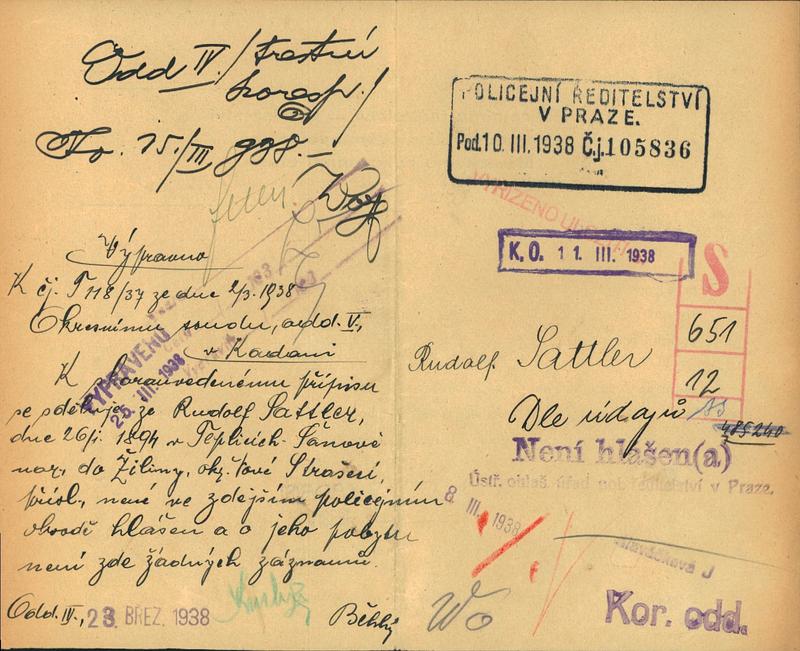 Odd IV/trestní
koresp./
15./III 938.-
Výpravno
K čj. T 118/37 ze dne 2/3.1938
Okresnímu soudu, odd. V.,
v Kadani
K shorauvedenému přípisu
se sděluje, že Rudolf Sattler,
dne 26/1. 1894 v Teplicích-Šanově
nar., do Žiliny, okr. Nové Strašecí,
přísl., není ve zdejším policejním
obvodě hlášen a o jeho pobytu
není zde žádných záznamů.
Odd. IV., 23. BŘEZ. 1938
VYPRAVENO
25. III. 1938
POLICEJNÍ ŘEDITELSTVÍ
V PRAZE.
Pod. 10 III. 1938 Č.j. 105836
VYŘÍZENO
K.O. 11. III. 1938
S
651
12
Rudolf Sattler
Dle údajů
485240
Není hlášen(a)
Ústř. ohlaš. úřad pol. ředitelství v Praze.
8 III. 1938
Hlaváčková J
Kor. odd.